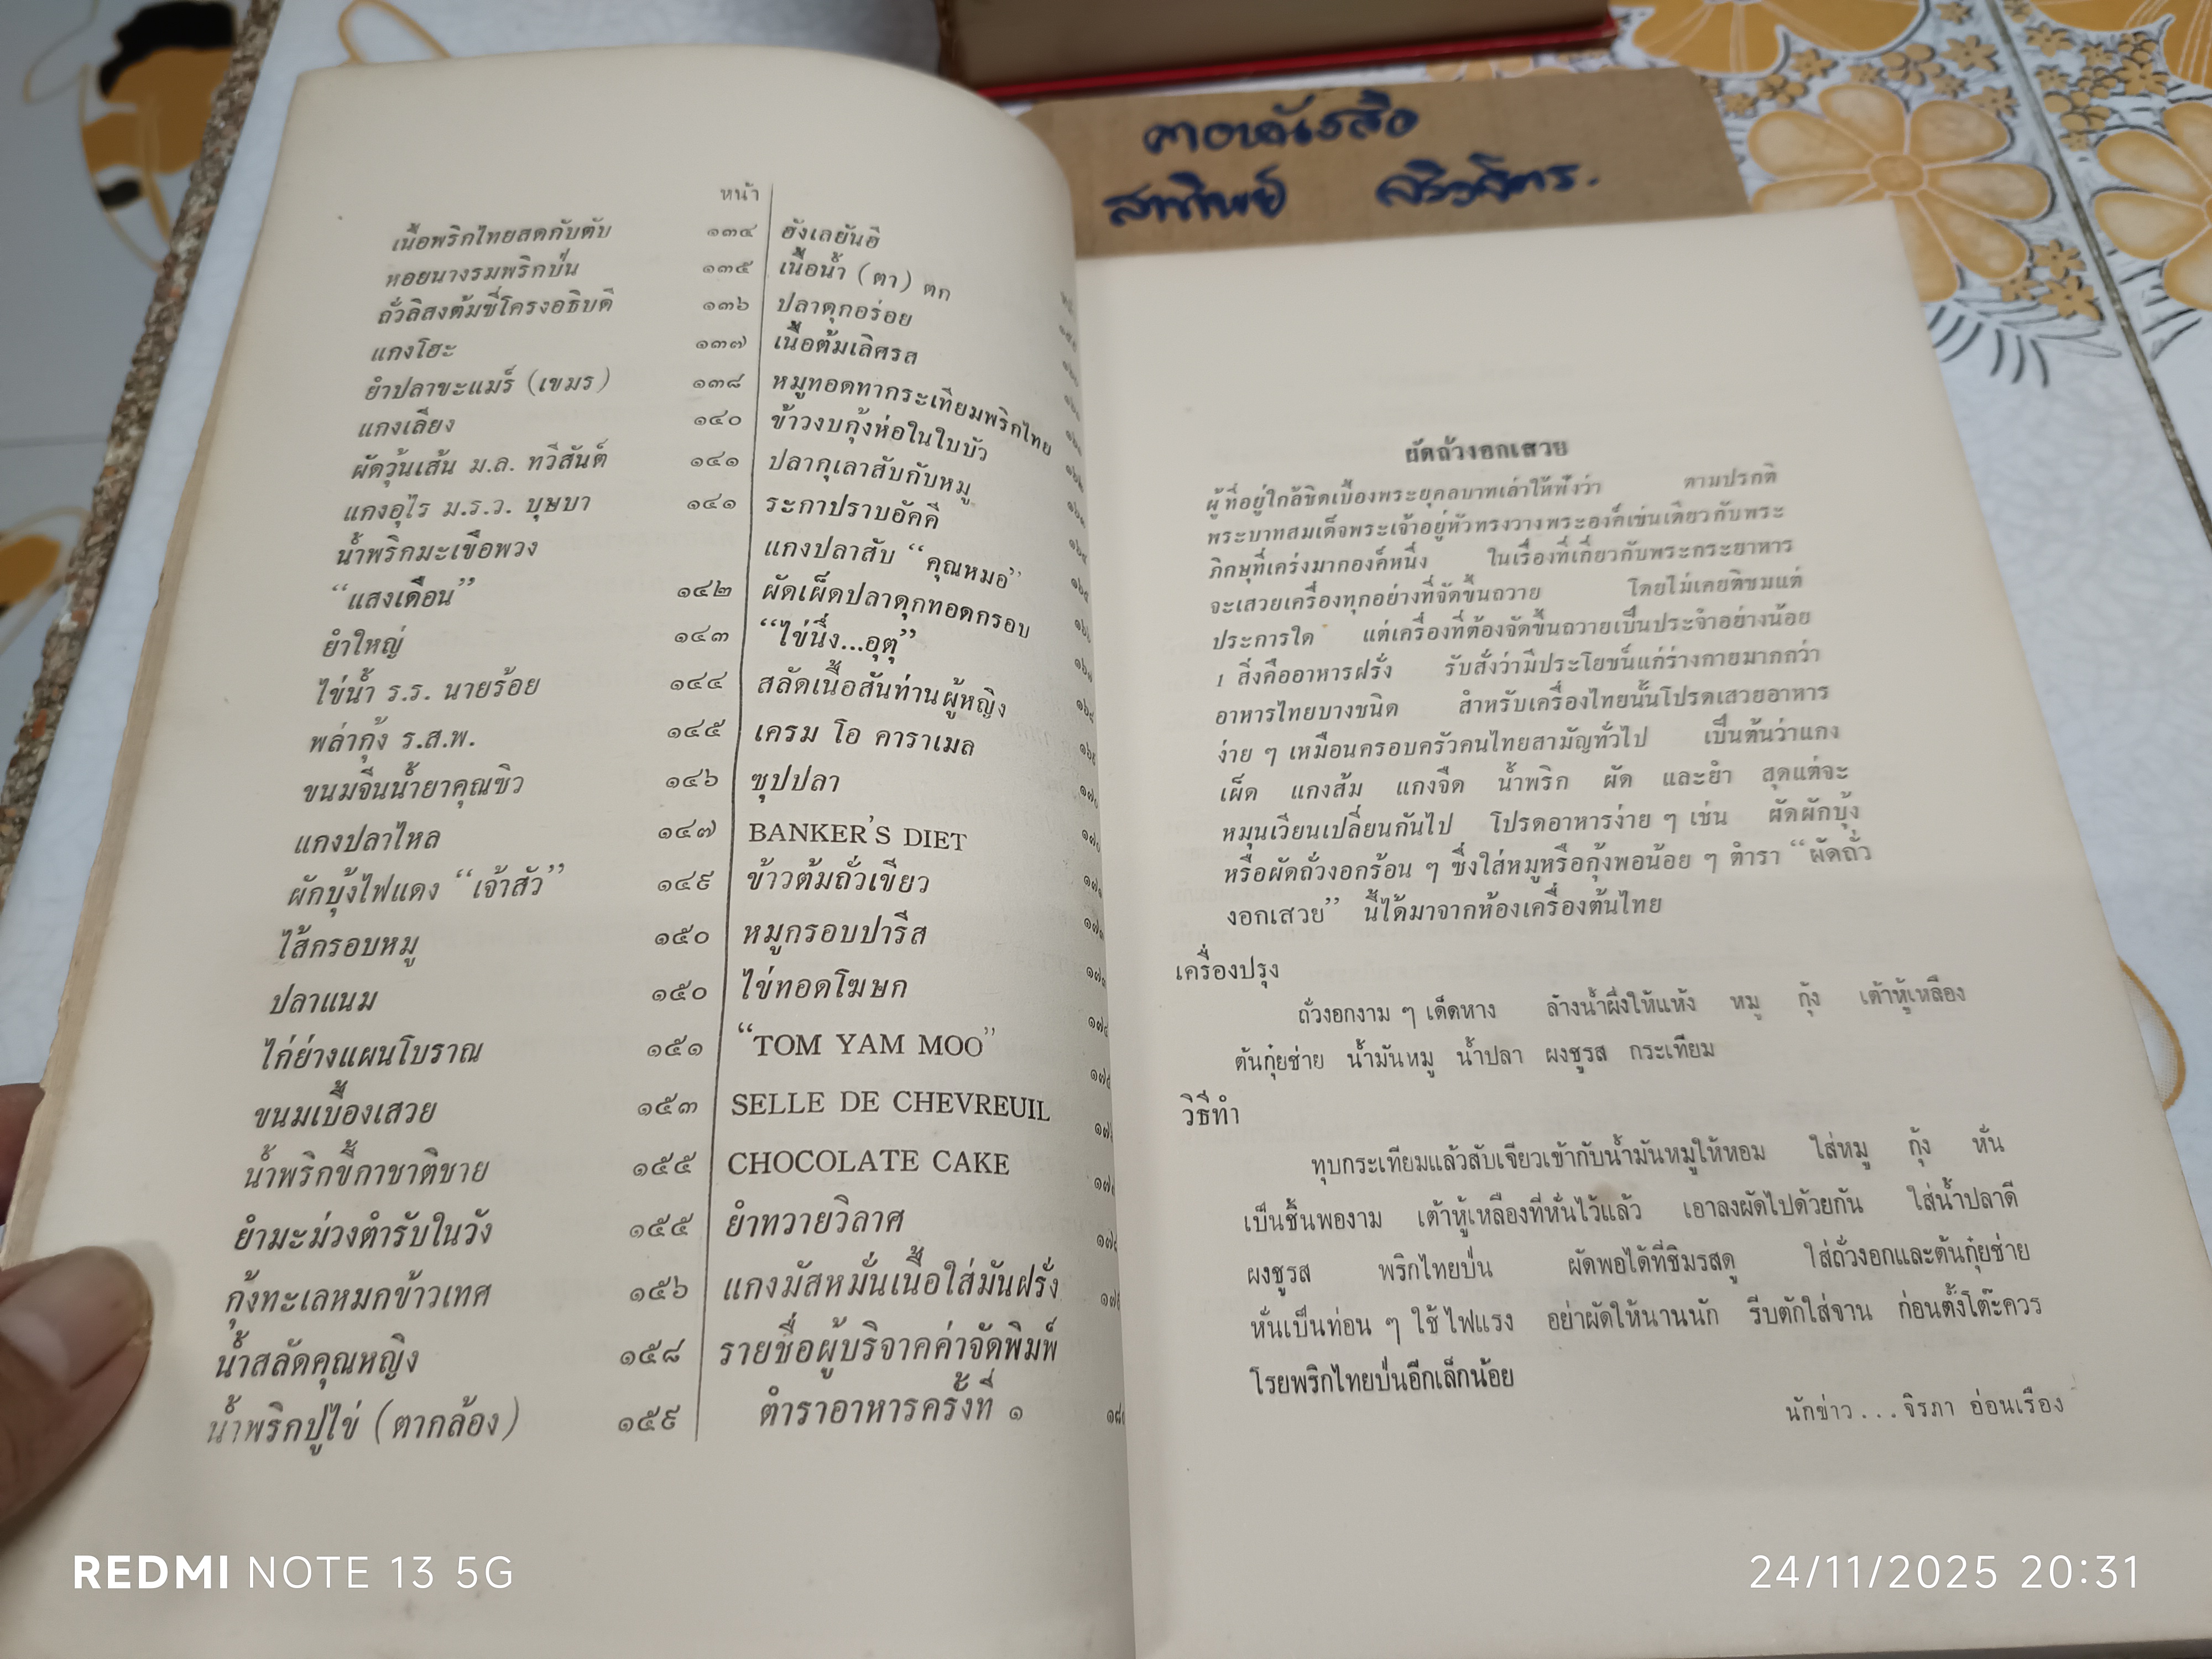 คาอหนังสือ
สาทิพย์
หน้า
เนื้อพริกไทยสดกับตับ ๑๓๔
หอยนางรมพริกป่น ๑๓๕
ถั่วลิสงต้มซี่โครงอธิบดี ๑๓๖
แกงโฮะ ๑๓๗
ยำปลาขะแมร์ (เขมร) ๑๓๘
แกงเลียง ๑๔๐
ผัดวุ้นเส้น ม.ล. ทวีสันต์ ๑๔๑
แกงอุไร ม.ร.ว. บุษบา ๑๔๑
น้ำพริกมะเขือพวง
“แสงเดือน” ๑๔๒
ยำใหญ่ ๑๔๓
ไข่น้ำ ร.ร. นายร้อย ๑๔๔
พล่ากุ้ง ร.ส.พ. ๑๔๕
ขนมจีนน้ำยาคุณซิว ๑๔๖
แกงปลาไหล ๑๔๗
ผักบุ้งไฟแดง “เจ้าสัว” ๑๔๙
ไส้กรอบหมู ๑๕๐
ปลาแนม ๑๕๐
ไก่ย่างแผนโบราณ ๑๕๑
ขนมเบื้องเสวย ๑๕๓
น้ำพริกขี้กาชาติชาย ๑๕๕
ยำมะม่วงตำรับในวัง ๑๕๕
กุ้งทะเลหมกข้าวเทศ ๑๕๖
น้ำสลัดคุณหญิง ๑๕๘
น้ำพริกปูไข่ (ตากล้อง) ๑๕๙
ฮังเลยันฮี
เนื้อน้ำ (ตา) ตก
ปลาดุกอร่อย
เนื้อต้มเลิศรส
หมูทอดทากระเทียมพริกไทย
ข้าวงบกุ้งห่อในใบบัว
ปลากุเลาสับกับหมู
ระกาปราบอัคคี
แกงปลาสับ “คุณหมอ”
ผัดเผ็ดปลาดุกทอดกรอบ
“ไข่นึ่ง...อุตุ”
สลัดเนื้อสันท่านผู้หญิง
เครม โอ คาราเมล
ซุปปลา
BANKER'S DIET
ข้าวต้มถั่วเขียว
หมูกรอบปารีส
ไข่ทอดโฆษก
“TOM YAM MOO”
SELLE DE CHEVREUIL
CHOCOLATE CAKE
ยำทวายวิลาศ
แกงมัสหมั่นเนื้อใส่มันฝรั่ง
รายชื่อผู้บริจาคค่าจัดพิมพ์
ตำราอาหารครั้งที่ ๑
ผัดถั่วงอกเสวย
ผู้ที่อยู่ใกล้ชิดเบื้องพระยุคลบาทเล่าให้ฟังว่า ตามปรกติ
พระบาทสมเด็จพระเจ้าอยู่หัวทรงวางพระองค์เช่นเดียวกับพระ
ภิกษุที่เคร่งมากองค์หนึ่ง ในเรื่องที่เกี่ยวกับพระกระยาหาร
จะเสวยเครื่องทุกอย่างที่จัดขึ้นถวาย โดยไม่เคยติชมแต่
ประการใด แต่เครื่องที่ต้องจัดขึ้นถวายเป็นประจำอย่างน้อย
1 สิ่งคืออาหารฝรั่ง รับสั่งว่ามีประโยชน์แก่ร่างกายมากกว่า
อาหารไทยบางชนิด สำหรับเครื่องไทยนั้นโปรดเสวยอาหาร
ง่าย ๆ เหมือนครอบครัวคนไทยสามัญทั่วไป เป็นต้นว่าแกง
เผ็ด แกงส้ม แกงจืด น้ำพริก ผัด และยำ สุดแต่จะ
หมุนเวียนเปลี่ยนกันไป โปรดอาหารง่าย ๆ เช่น ผัดผักบุ้ง
หรือผัดถั่วงอกร้อน ๆ ซึ่งใส่หมูหรือกุ้งพอน้อย ๆ ตำรา “ผัดถั่ว
งอกเสวย” นี้ได้มาจากห้องเครื่องต้นไทย
เครื่องปรุง
ถั่วงอกงาม ๆ เด็ดหาง ล้างน้ำผึ่งให้แห้ง หมู กุ้ง เต้าหู้เหลือง
ต้นกุ๋ยช่าย น้ำมันหมู น้ำปลา ผงชูรส กระเทียม
วิธีทำ
ทุบกระเทียมแล้วสับเจียวเข้ากับน้ำมันหมูให้หอม ใส่หมู กุ้ง หั่น
เป็นชิ้นพองาม เต้าหู้เหลืองที่หั่นไว้แล้ว เอาลงผัดไปด้วยกัน ใส่น้ำปลาดี
ผงชูรส พริกไทยป่น ผัดพอได้ที่ชิมรสดู ใส่ถั่วงอกและต้นกุ๋ยช่าย
หั่นเป็นท่อน ๆ ใช้ไฟแรง อย่าผัดให้นานนัก รีบตักใส่จาน ก่อนตั้งโต๊ะควร
โรยพริกไทยป่นอีกเล็กน้อย
นักข่าว...จิรภา อ่อนเรือง
REDMI NOTE 13 5G
24/11/2025 20:31